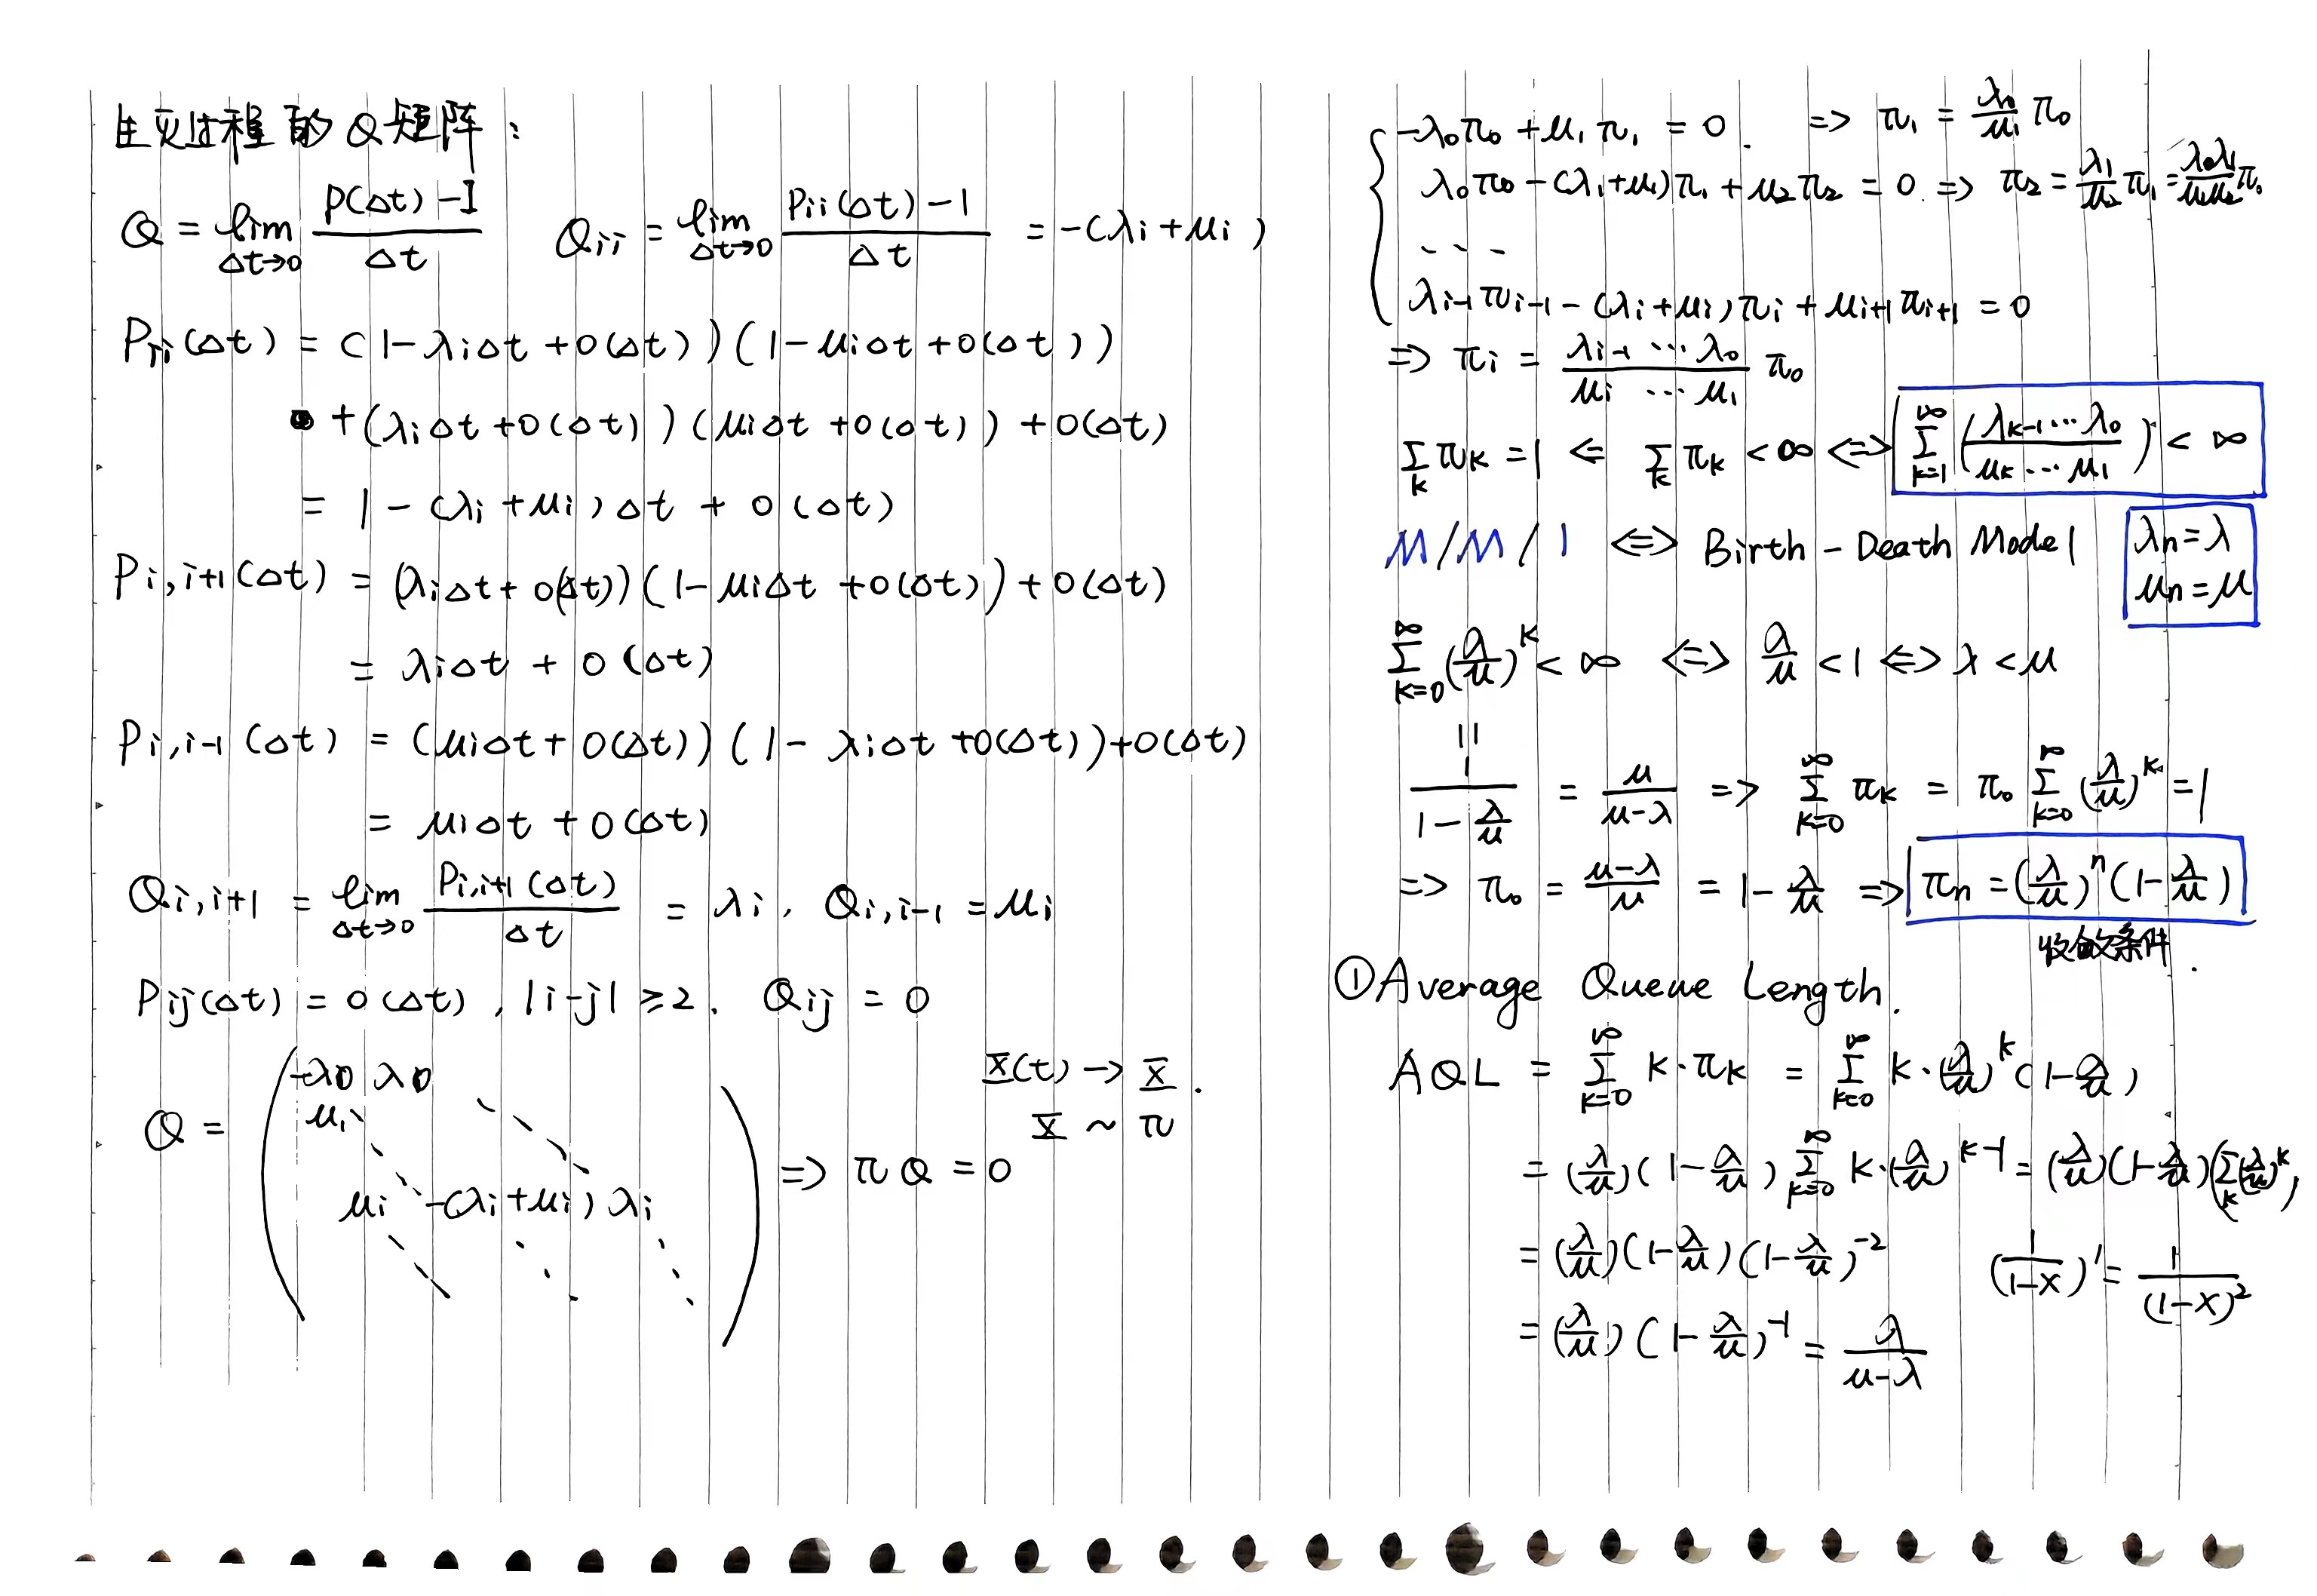 生灭过程的Q矩阵:
Q = lim_{Δt→0} (P(Δt)-I)/Δt   Q_{ii} = lim_{Δt→0} (P_{ii}(Δt)-1)/Δt = -(λ_i+μ_i)
P_{ii}(Δt) = (1-λ_iΔt+o(Δt))(1-μ_iΔt+o(Δt))
+(λ_iΔt+o(Δt))(μ_iΔt+o(Δt))+o(Δt)
= 1-(λ_i+μ_i)Δt+o(Δt)
P_{i,i+1}(Δt) = (λ_iΔt+o(Δt))(1-μ_iΔt+o(Δt))+o(Δt)
= λ_iΔt+o(Δt)
P_{i,i-1}(Δt) = (μ_iΔt+o(Δt))(1-λ_iΔt+o(Δt))+o(Δt)
= μ_iΔt+o(Δt)
Q_{i,i+1} = lim_{Δt→0} P_{i,i+1}(Δt)/Δt = λ_i, Q_{i,i-1} = μ_i
P_{ij}(Δt) = o(Δt), |i-j| ≥ 2. Q_{ij} = 0
X(t) → X.
X ~ π
-λ_0 λ_0
μ_1
Q = ⇒ πQ = 0
μ_i -(λ_i+μ_i) λ_i
-λ_0π_0+μ_1π_1 = 0. ⇒ π_1 = λ_0/μ_1 π_0
λ_0π_0-(λ_1+μ_1)π_1+μ_2π_2 = 0. ⇒ π_2 = λ_1/μ_2 π_1 = λ_0λ_1/μ_1μ_2 π_0
...
λ_{i-1}π_{i-1}-(λ_i+μ_i)π_i+μ_{i+1}π_{i+1} = 0
⇒ π_i = (λ_{i-1}...λ_0)/(μ_i...μ_1) π_0
Σ_k π_k = 1 ⇐ Σ_k π_k < ∞ ⇔ Σ_{k=1}^∞ ((λ_{k-1}...λ_0)/(μ_k...μ_1)) < ∞
M/M/1 ⇔ Birth-Death Model λ_n=λ
μ_n=μ
Σ_{k=0}^∞ (λ/μ)^k < ∞ ⇔ λ/μ < 1 ⇔ λ < μ
||
1/(1-λ/μ) = μ/(μ-λ) ⇒ Σ_{k=0}^∞ π_k = π_0 Σ_{k=0}^∞ (λ/μ)^k = 1
⇒ π_0 = (μ-λ)/μ = 1-λ/μ ⇒ π_n = (λ/μ)^n (1-λ/μ)
收敛条件.
①Average Queue Length.
AQL = Σ_{k=0}^∞ k·π_k = Σ_{k=0}^∞ k·(λ/μ)^k (1-λ/μ)
= (λ/μ)(1-λ/μ) Σ_{k=0}^∞ k·(λ/μ)^{k-1} = (λ/μ)(1-λ/μ)(Σ_k (λ/μ)^k)'
= (λ/μ)(1-λ/μ)(1-λ/μ)^{-2}   (1/(1-x))' = 1/(1-x)^2
= (λ/μ)(1-λ/μ)^{-1} = λ/(μ-λ)